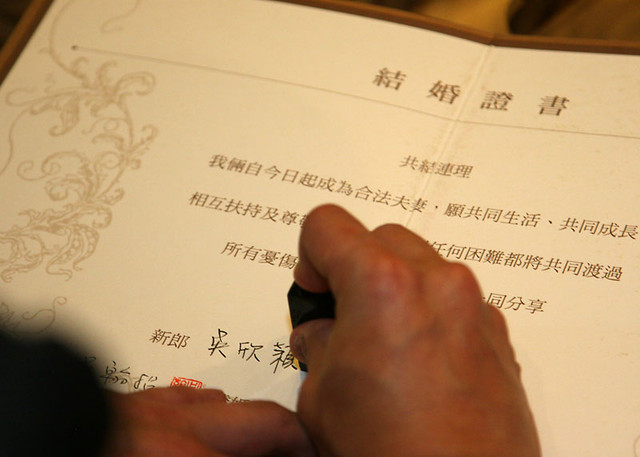 結婚證書
共結連理
我倆自今日起成為合法夫妻，願共同生活、共同成長
相互扶持及尊 任何困難都將共同渡過
所有憂傷 同分享
新郎 吳欣穎